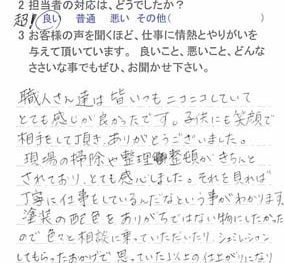 2 担当者の対応は、どうでしたか？
超！ 良い 普通 悪い その他(
3 お客様の声を聞くほど、仕事に情熱とやりがいを
与えて頂いています。 良いこと、悪いこと、どんな
ささいな事でもぜひ、お聞かせ下さい。
職人さん達は皆いつもニコニコしていて
とても感じが良かったです。子供にも笑顔で
相手をして頂き、ありがとうございました。
現場の掃除や整理整頓がきちんと
されており、とても感心しました。それを見れば
丁寧に仕事をしているんだなという事がわかります
塗装の配色をありがちではない物にしたかった
ので色々と相談に乗っていただいたり、シュミレーション
してもらったおかげで思っていた以上の仕上がりになり